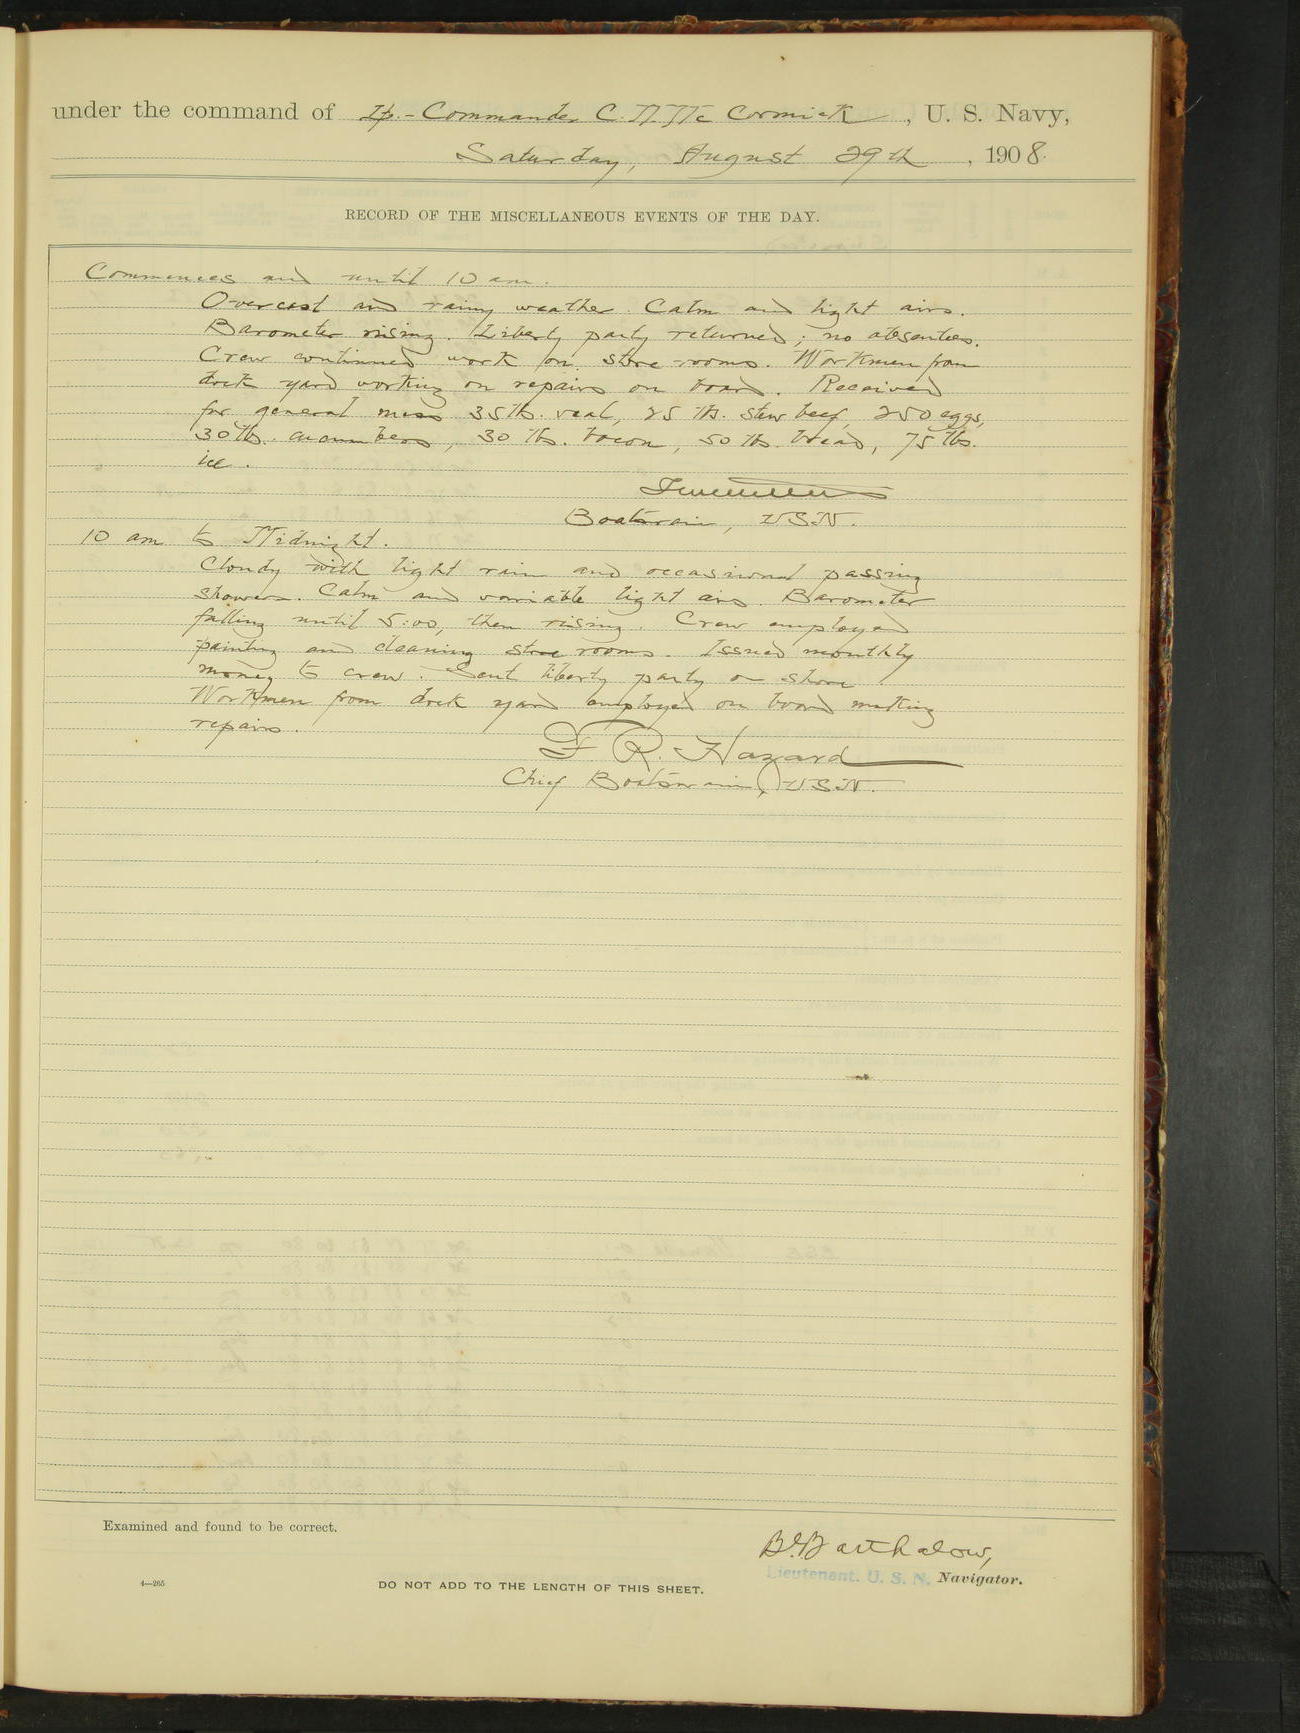 under the command of Lt.-Commander C. M. McCormick, U. S. Navy,
Saturday, August 29th, 1908.
RECORD OF THE MISCELLANEOUS EVENTS OF THE DAY.
Commences and until 10 am.
Overcast and rainy weather. Calm and light airs.
Barometer rising. Liberty party returned; no absentees.
Crew continued work on store-rooms. Workmen from
dock yard working on repairs on board. Received
for general mess 35 lb. veal, 25 lb. stew beef, 250 eggs,
30 lb. cucumbers, 30 lb. bacon, 50 lb. bread, 75 lb.
ice.
Boatswain, USN.
10 am to Midnight.
Cloudy with light rain and occasional passing
showers. Calm and variable light airs. Barometer
falling until 5:00, then rising. Crew employed
painting and cleaning store rooms. Issued monthly
money to crew. Sent liberty party on shore.
Workmen from dock yard employed on board making
repairs.
F R. Hazard
Chief Boatswain, USN.
Examined and found to be correct.
Barthalow,
Lieutenant. U. S. N. Navigator.
4—265
DO NOT ADD TO THE LENGTH OF THIS SHEET.